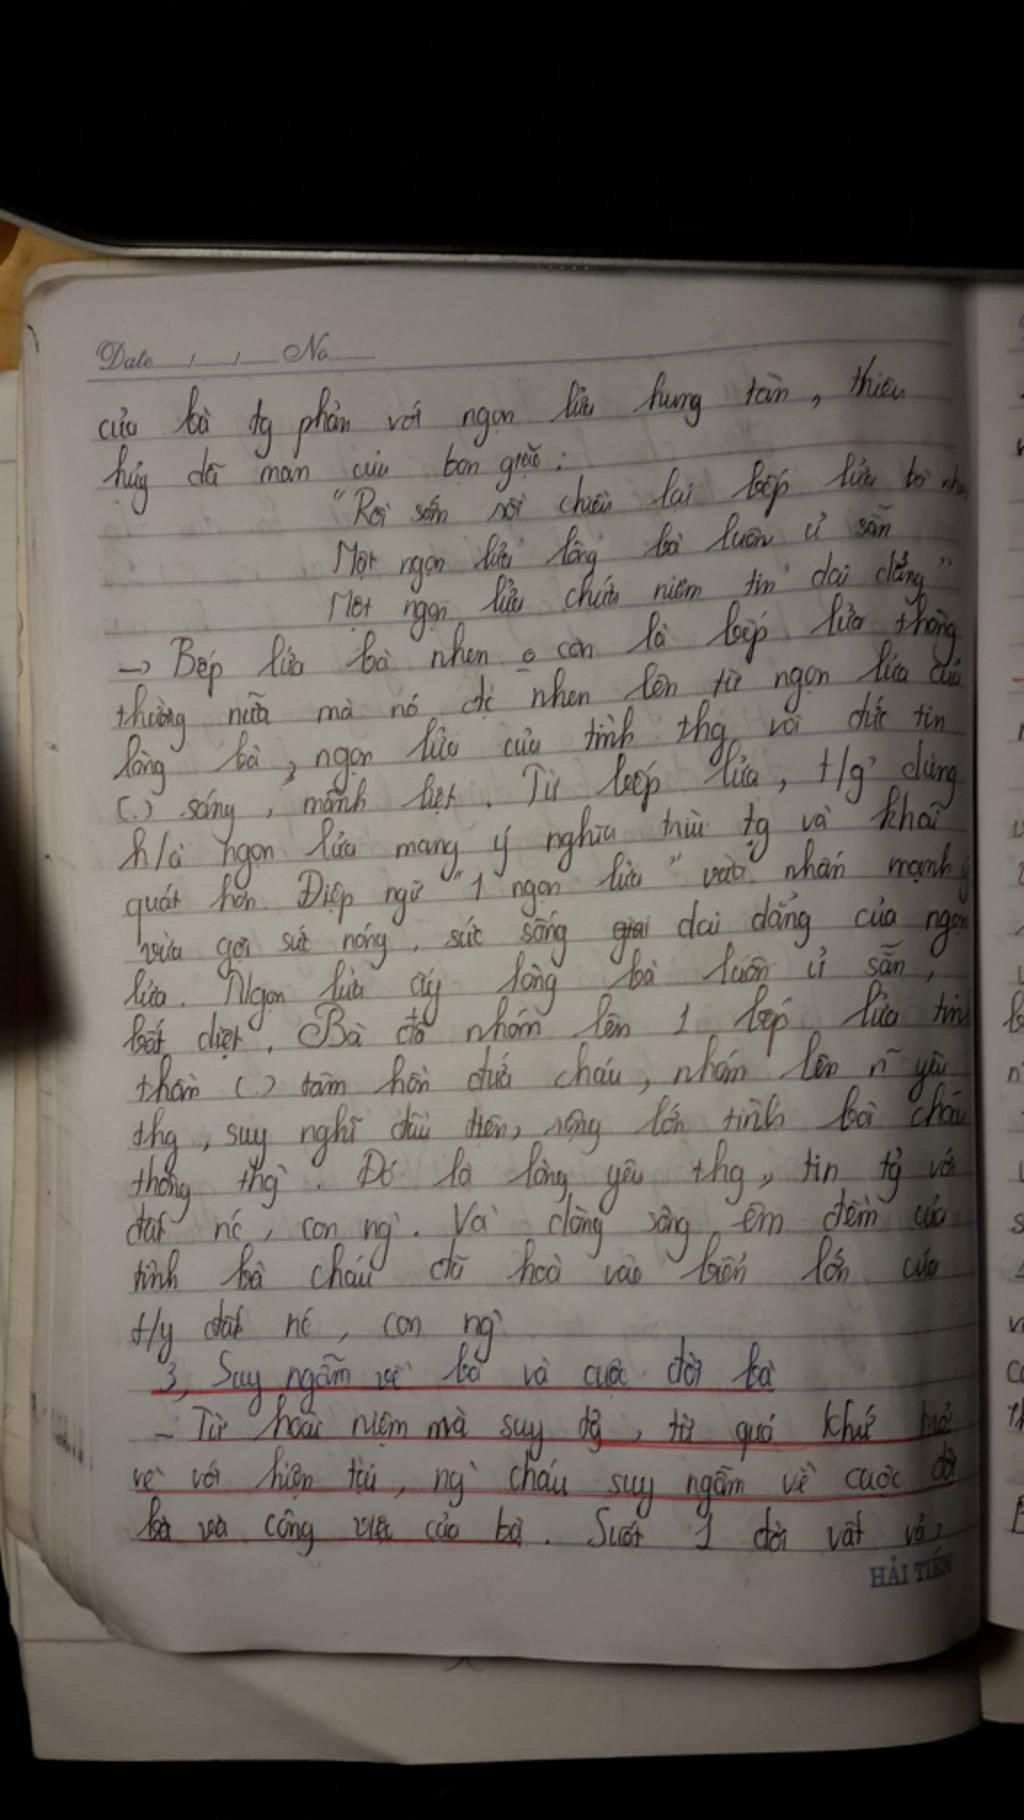 Date...../...../..... No..........
của bà tg phản với ngọn lửa hung tàn, thiêu
hủy dã man của bọn giặc:
"Rồi sớm rồi chiều lại bếp lửa bà nhen
Một ngọn lửa lòng bà luôn ủ sẵn
Một ngọn lửa chứa niềm tin dai dẳng"
-> Bếp lửa bà nhen o còn là bếp lửa thông
thường nữa mà nó đc nhen lên từ ngọn lửa của
lòng bà, ngọn lửa của tình thg với đức tin
(.) sáng, mãnh liệt. Từ bếp lửa, t/g dùng
h/ả ngọn lửa mang ý nghĩa trừu tg và khái
quát hơn. Điệp ngữ "1 ngọn lửa" vừa nhấn mạnh
vừa gợi sức nóng, sức sống dai dẳng của ngọn
lửa. Ngọn lửa ấy lòng bà luôn ủ sẵn,
bất diệt. Bà đã nhóm lên 1 bếp lửa tinh
thần (.) tâm hồn đứa cháu, nhóm lên n~ yêu
thg, suy nghĩ đầu tiên, rộng lớn tình bà cháu
thông thg`. Đó là lòng yêu thg, tin tg với
đất nc, con ng`. Và dòng sông êm đềm của
tình bà cháu đã hoà vào biển lớn của
t/y đất nc, con ng`
3, Suy ngẫm về bà và cuộc đời bà
- Từ hoài niệm mà suy tg, từ quá khứ trở
về với hiện tại, ng` cháu suy ngẫm về cuộc đời
bà và công việc của bà. Suốt 1 đời vất vả,
HẢI TIẾN